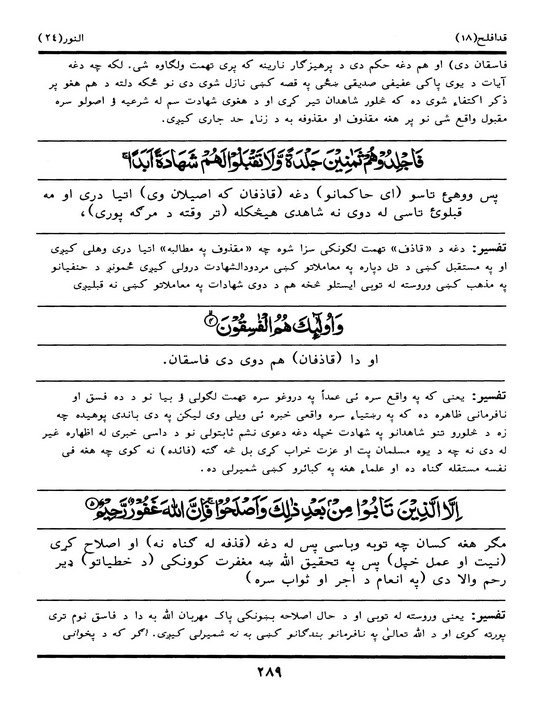 قدافلح(۱۸) النور(۲٤)
فاسقان دي) او هم دغه حکم دی د پرهیزګار نارینه که پری تهمت ولګاوه شی. لکه چه دغه
آیات د یوی پاکی عفیفی صدیقی ښځی په قصه کښی نازل شوی دی نو ځکه دلته د هم هغو پر
ذکر اکتفاء شوی ده که څلور شاهدان تیر کړی او د هغوی شهادت سم له شرعیه ؤ اصولو سره
مقبول واقع شی نو پر هغه مقذوف او مقذوفه به د زناء حد جاری کیږی.
فَاجْلِدُوْهُمْ ثَمٰنِیْنَ جَلْدَةً وَّلَا تَقْبَلُوْا لَهُمْ شَهَادَةً اَبَدًا
پس ووهئ تاسو (ای حاکمانو) دغه (قاذفان که اصیلان وی) اتیا دری او مه
قبلوئ تاسی له دوی نه شاهدی هیڅکله (تر وقته د مرګه پوری)،
تفسیر: دغه د «قاذف» تهمت لګونکی سزا شوه چه «مقذوف په مطالبه» اتیا دری وهلی کیږی
او په مستقبل کښی د تل دپاره په معاملاتو کښی مردودالشهادت درولی کیږی ځمونږ د حنفیانو
په مذهب کښی وروسته له توبی ایستلو څخه هم د دوی شهادات په معاملاتو کښی نه قبلیږی
وَاُولٰٓئِكَ هُمُ الْفٰسِقُوْنَ ﴿۴﴾
او دا (قاذفان) هم دوی دی فاسقان.
تفسیر: یعنی که په واقع سره ئی عمداً په دروغو سره تهمت لګولی ؤ بیا نو د ده فسق او
نافرمانی ظاهره ده که په رښتیاء سره واقعی خبره ئی ویلی وی لیکن په دی باندی پوهیده چه
زه د څلورو تنو شاهدانو په شهادت خپله دغه دعوی نشم ثابتولی نو د داسی خبری له اظهاره غیر
له دی نه چه د یوه مسلمان پت او عزت خراب کړی بل څه ګټه (فائده) نه کوی چه هغه فی
نفسه مستقله ګناه ده او علماء هغه په کبائرو کښی شمیرلی ده.
اِلَّا الَّذِيْنَ تَابُوْا مِنْۢ بَعْدِ ذٰلِكَ وَاَصْلَحُوْا فَاِنَّ اللّٰهَ غَفُوْرٌ رَّحِيْمٌ ﴿۵﴾
مګر هغه کسان چه توبه وباسی پس له دغه (قذفه له ګناه نه) او اصلاح کړی
(نیت او عمل خپل) پس په تحقیق الله ښه مغفرت کوونکی (د خطیاتو) ډیر
رحم والا دی (په انعام د اجر او ثواب سره)
تفسیر: یعنی وروسته له توبی او د حال اصلاحه بښونکی پاک مهربان الله به دا د فاسق نوم تری
پورته کوی او د الله تعالیٰ په نافرمانو بندګانو کښی به نه شمیرلی کیږی. اګر که د پخوانی
۲۸۹